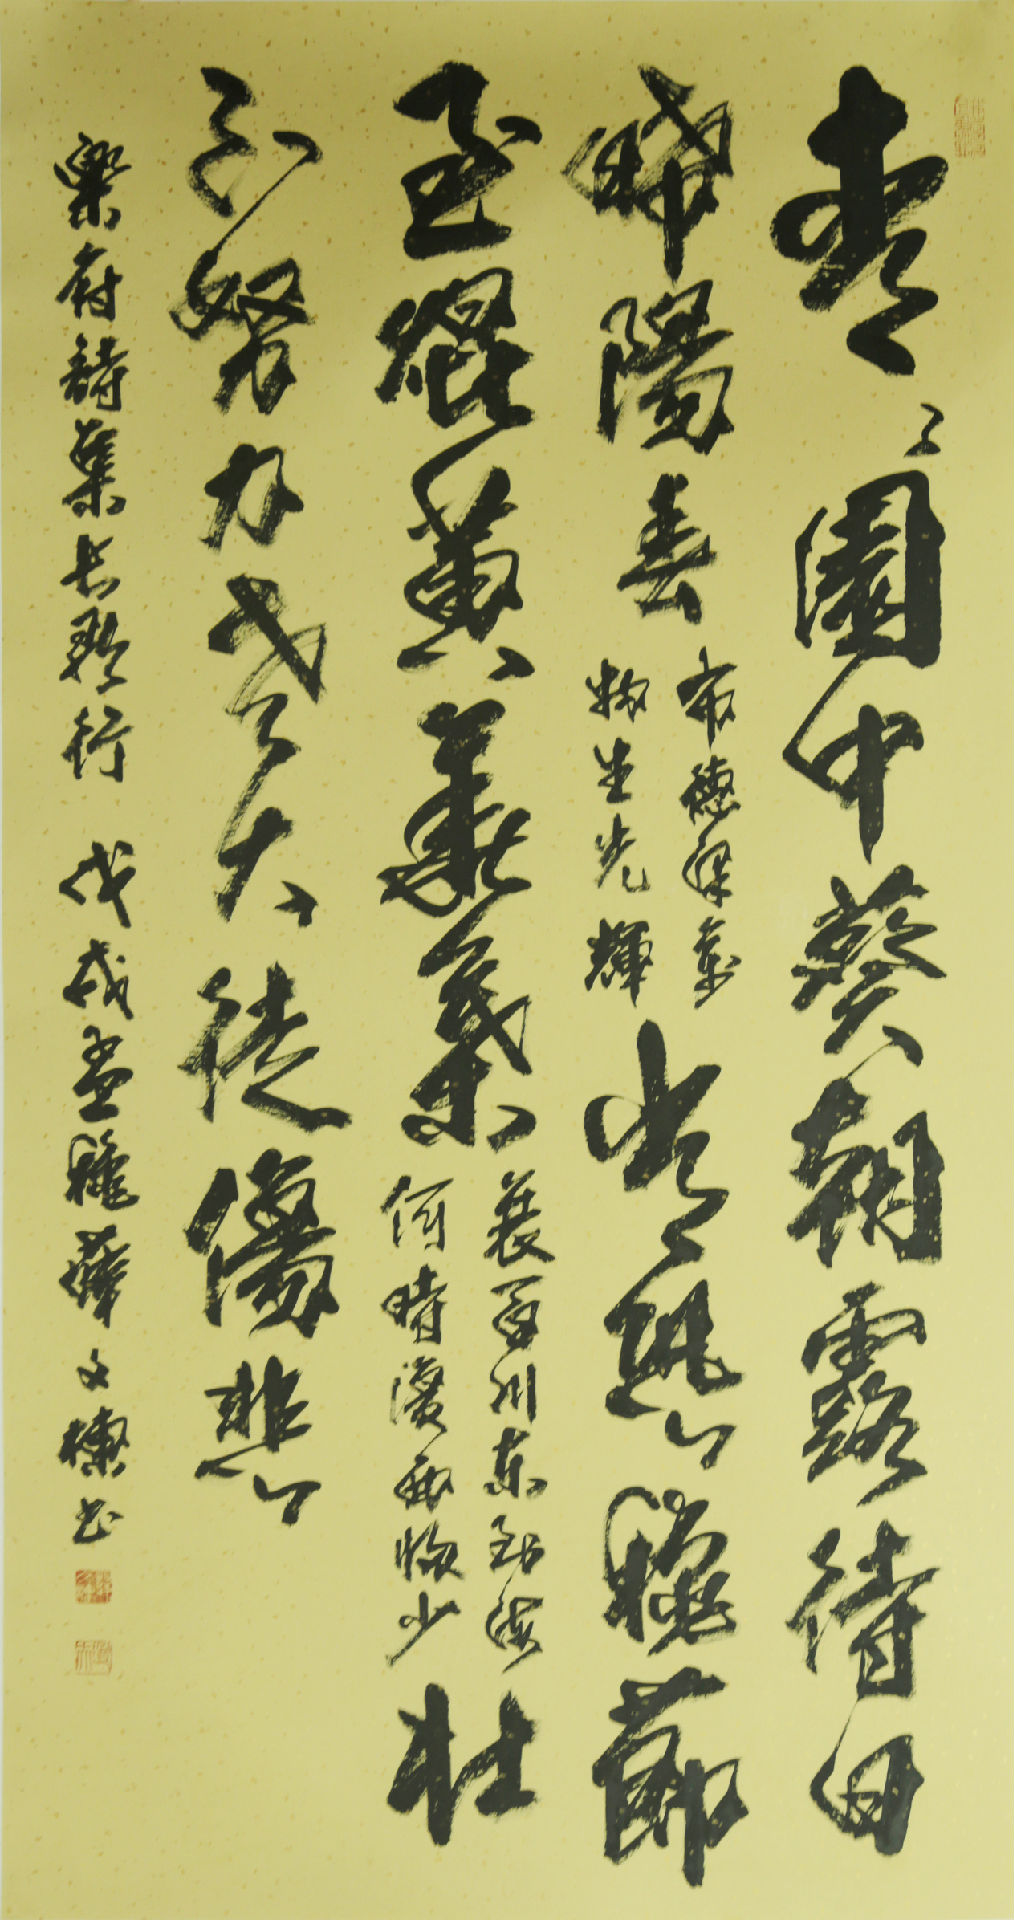 青〻園中葵朝露待日
晞陽春
布德澤萬
物生光輝
常恐穐節
至焜黃華葉
衰百川東到海
何時復西歸少
壯
不努力老大徒傷悲
樂府詩集長歌行 戊戌孟穐薛文書